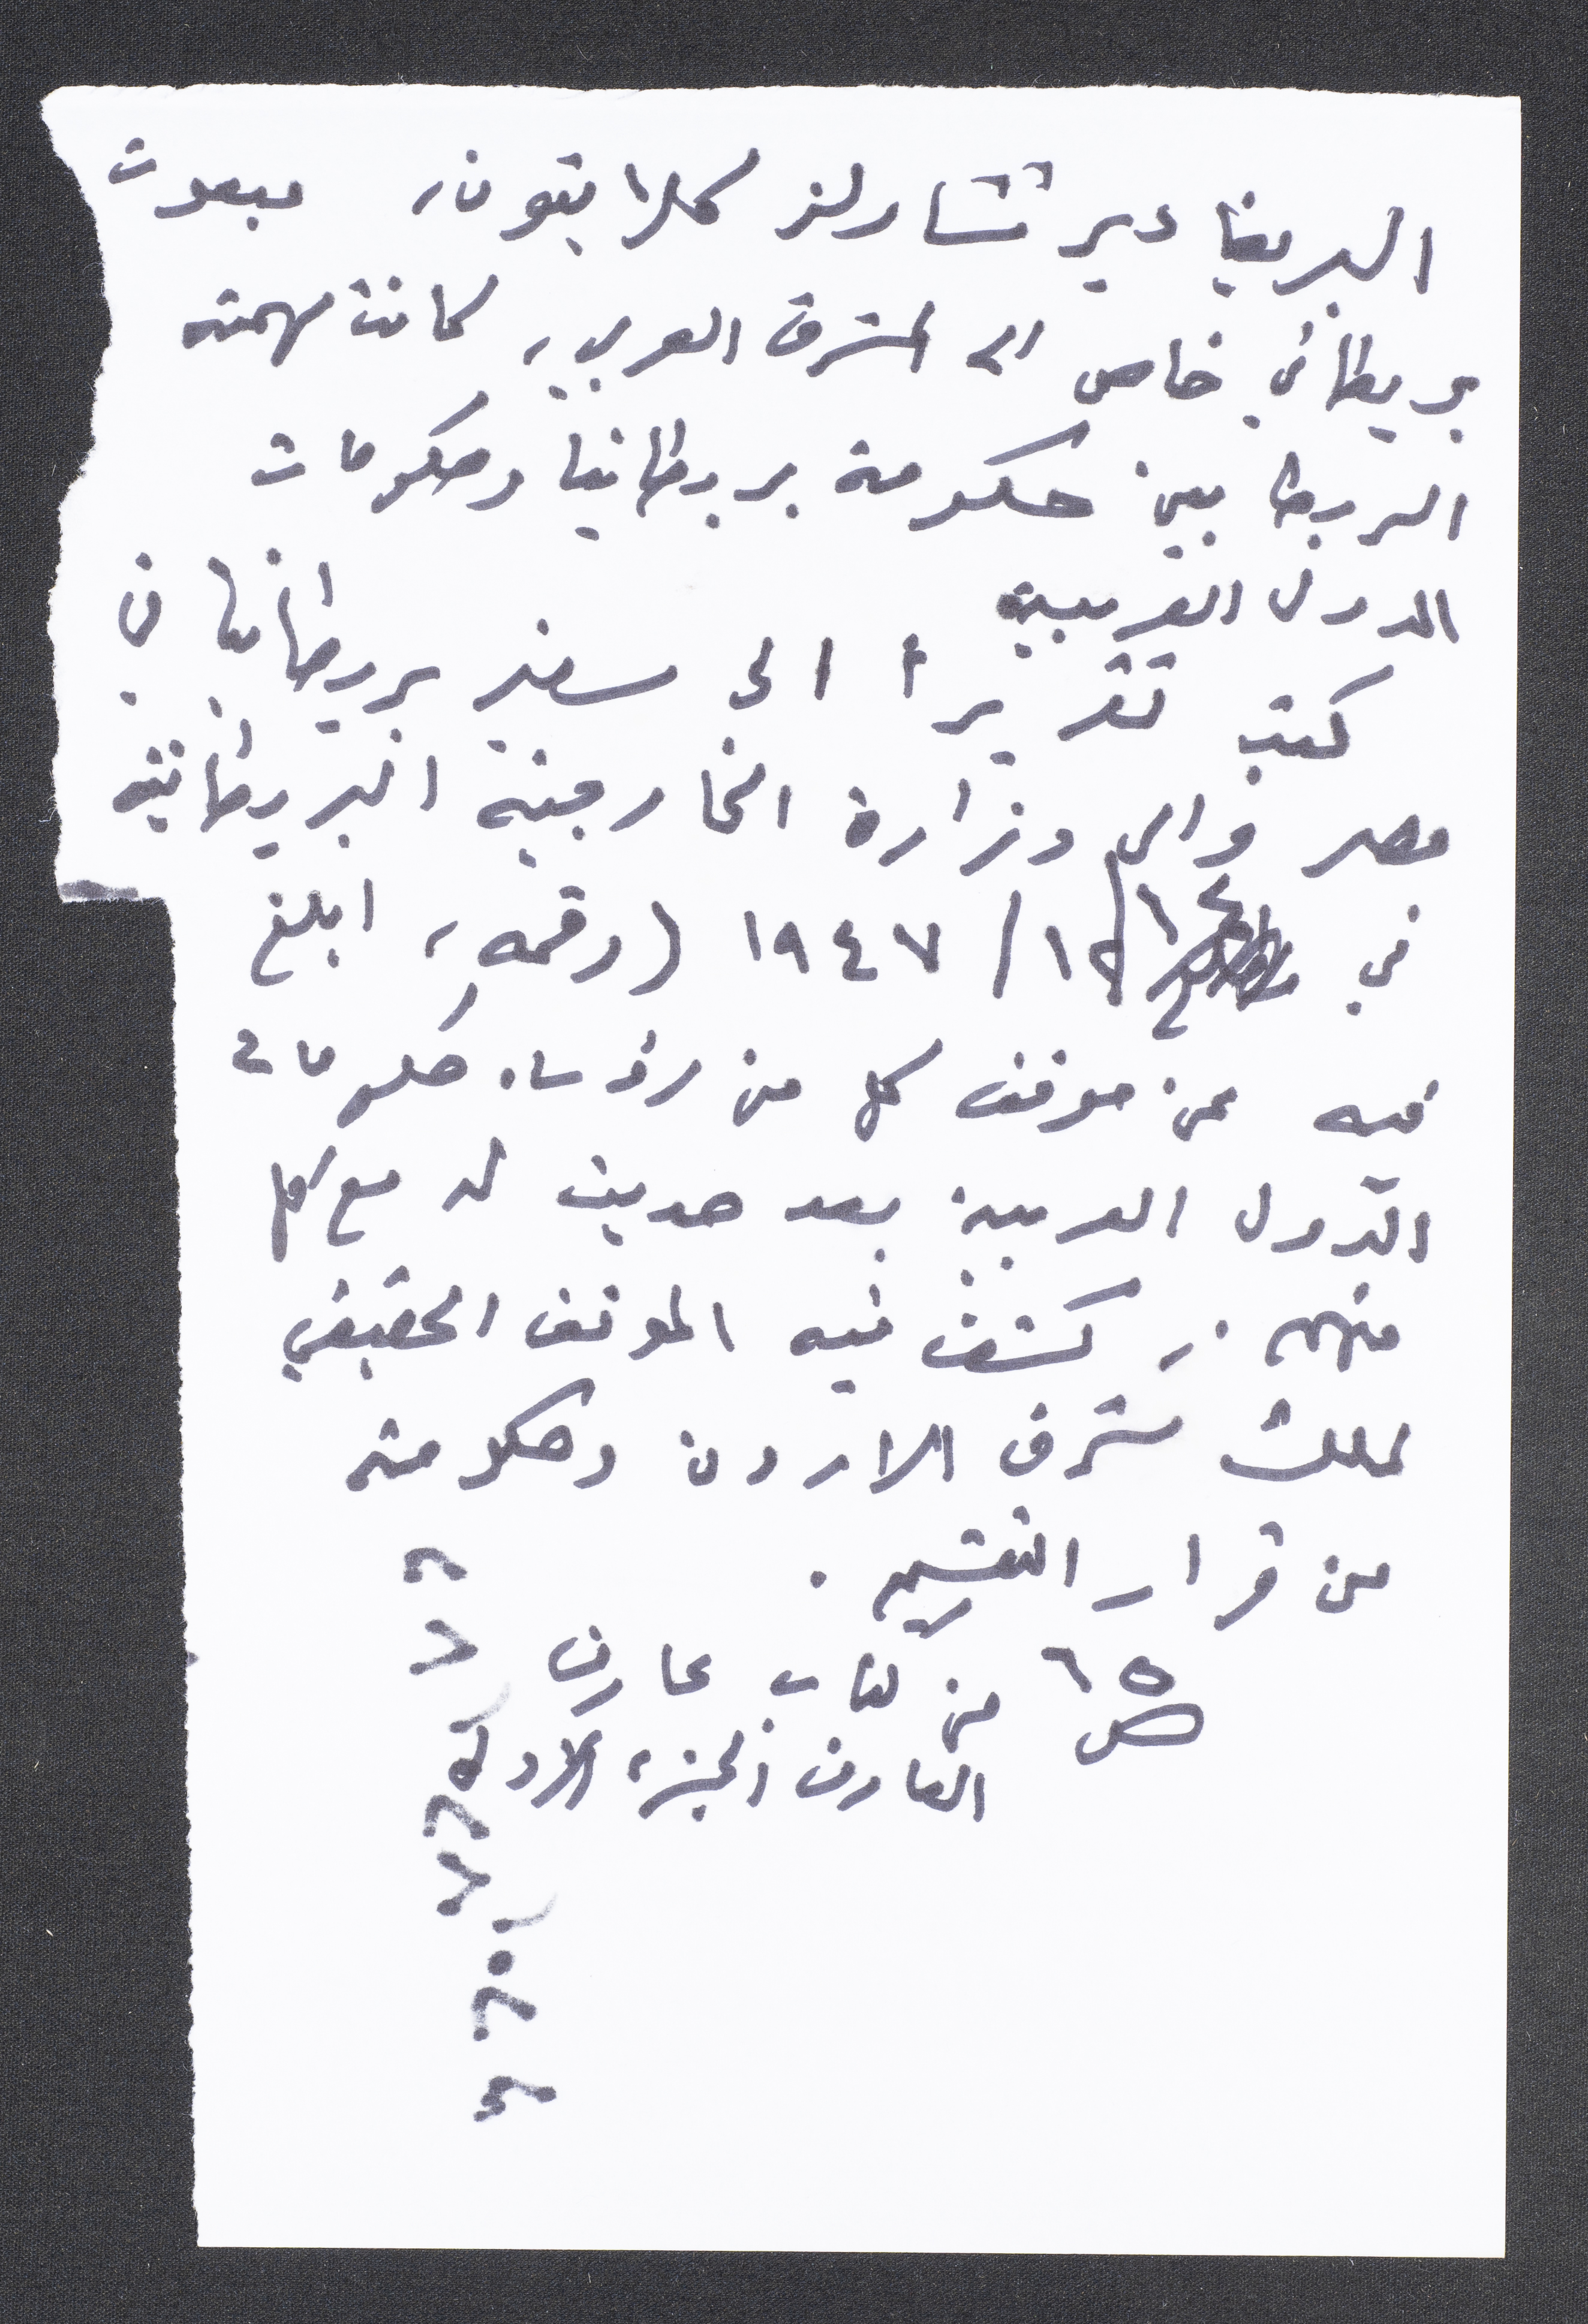 البريغا دير تشارلز كلايتون، مبعوث
بريطاني خاص الى المشرق العربي، كانت مهمته
الربط بين حكومة بريطانيا وحكومات
الدول العربية
كتب تقريرا الى سفير بريطانيا في
مصر والى وزارة الخارجية البريطانية
في ١٢/ ١٩٤٧ (رقمه، ابلغ
فيه عن موقف كل من رؤساء حكومات
الدول العربية بعد حديث له مع كل
منهم. كشف فيه الموقف الحقيقي
لملك شرق الاردن وحكومته
من قرار التقسيم.
ص ٦٥ من كتاب عارف
العارف الجزء الاول